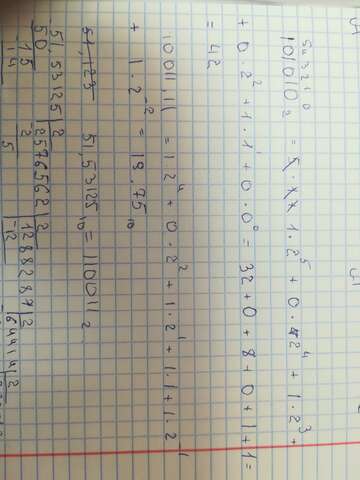 5 4 3 2 1 0
101010₂ = 1·2⁵ + 0·2⁴ + 1·2³ +
+ 0·2² + 1·1¹ + 0·0⁰ = 32 + 0 + 8 + 0 + 1 + 1 =
= 42
10011,11 = 1 2⁴ + 0·2² + 1·2¹ + 1·1 + 1·2⁻¹
+ 1·2⁻² = 19.75₁₀
51,123 51,53125₁₀ = 110011₂
51,53125 | 2
50 2576562 | 2
15 2 1288287 | 2
14 5 -12 64414 | 2